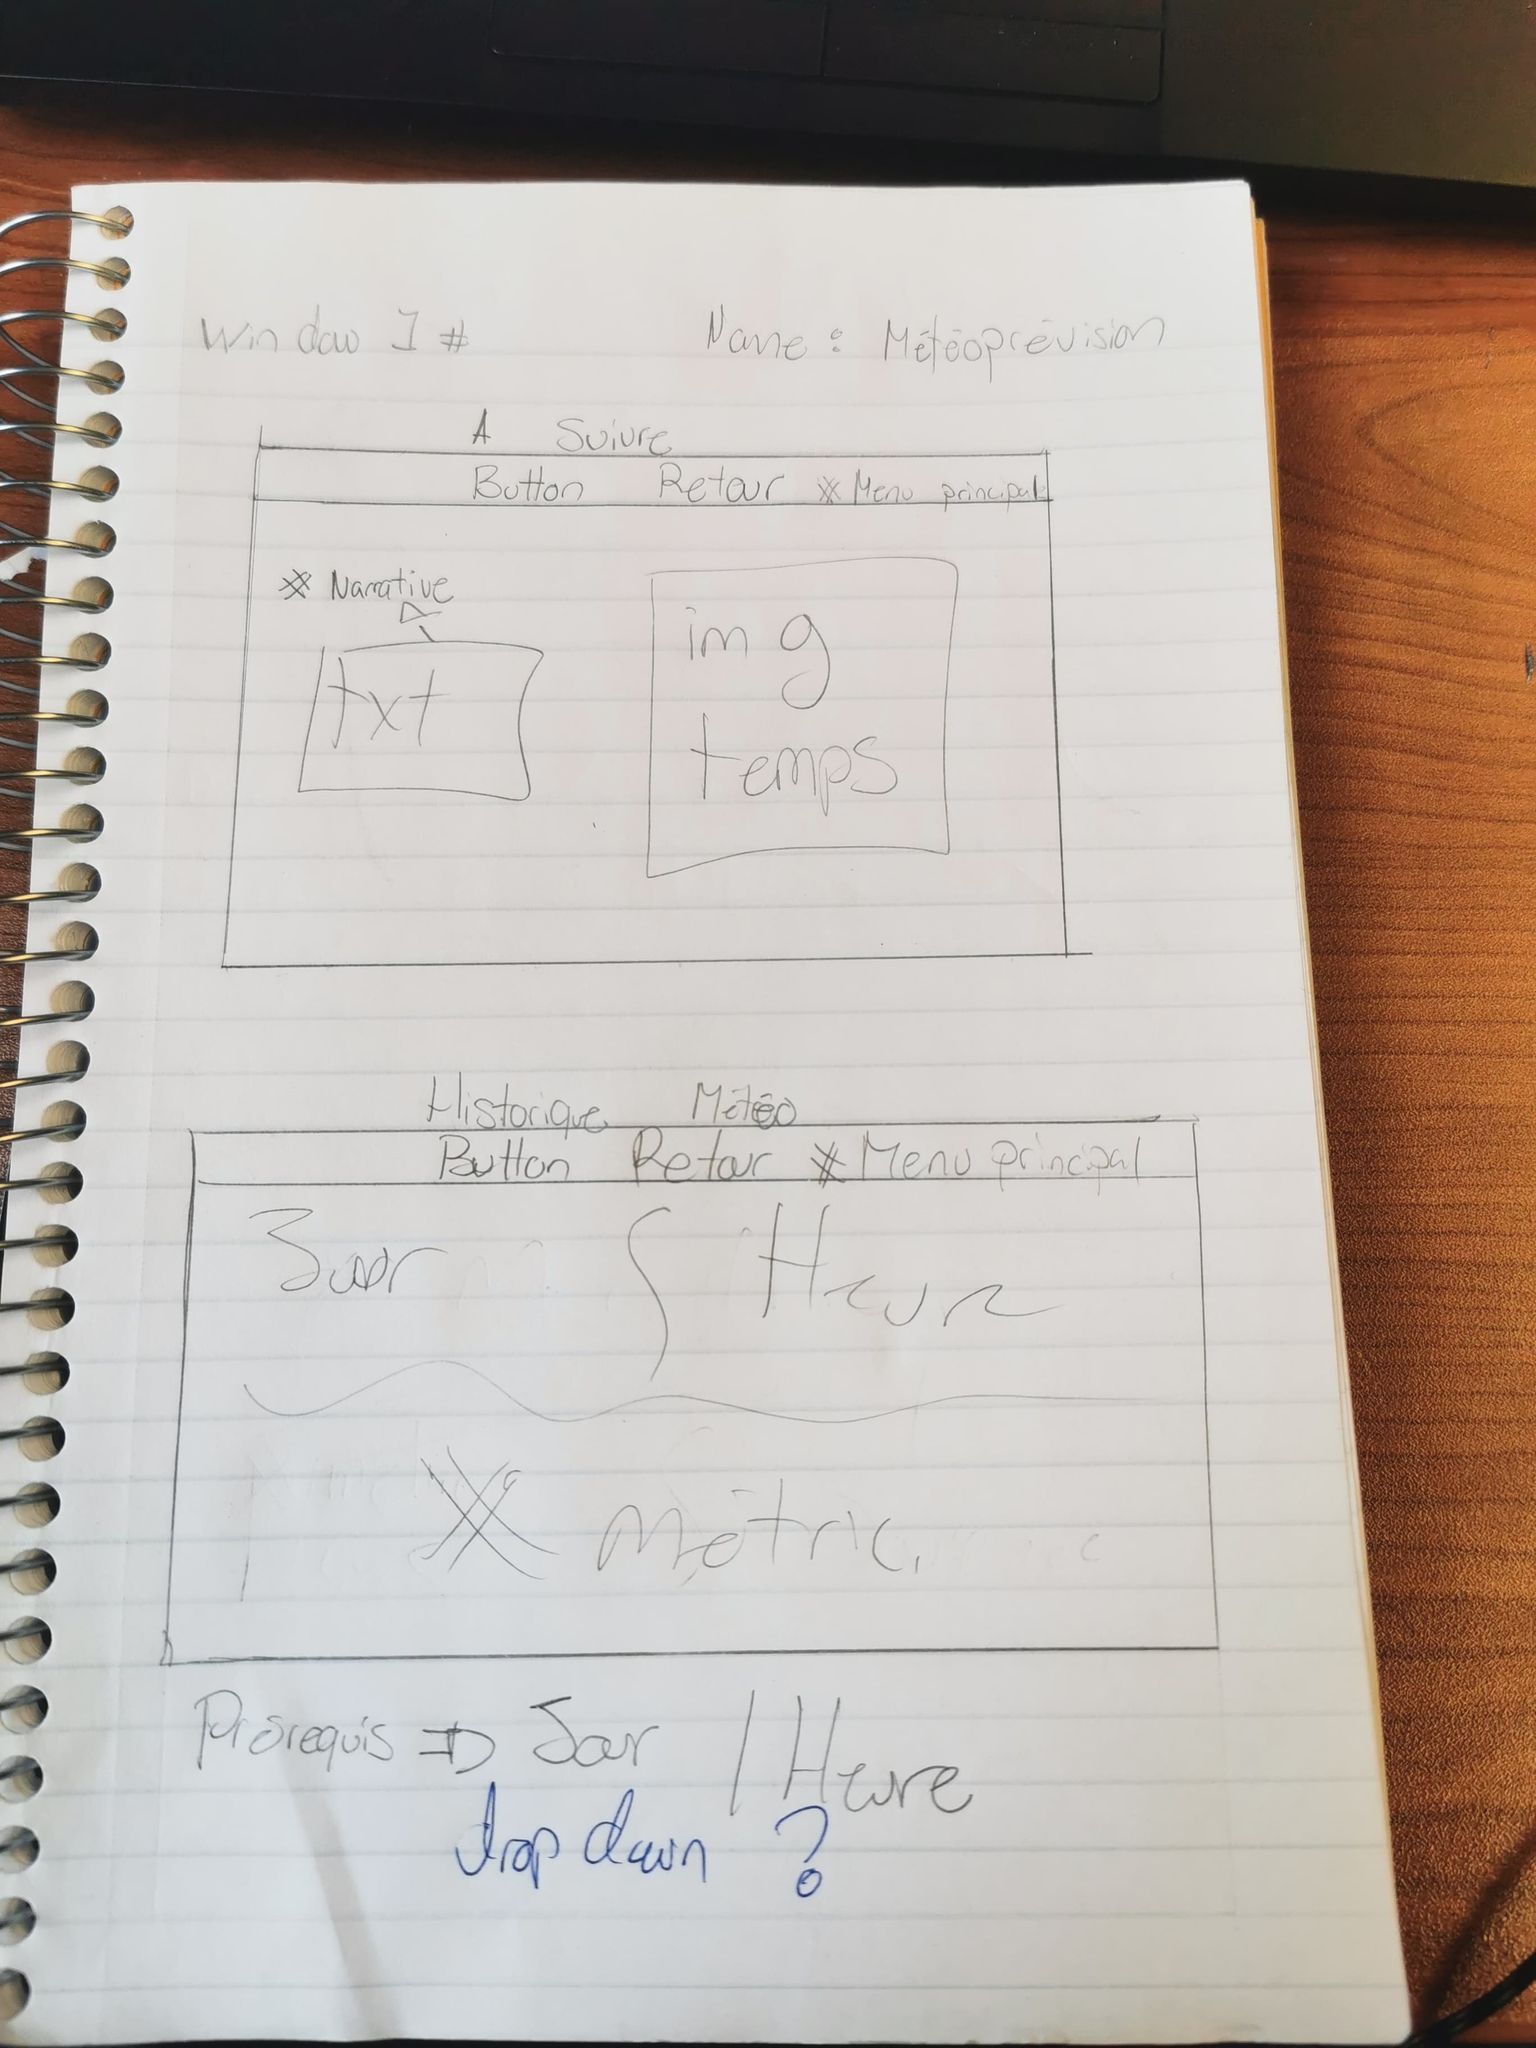 Window 1 #
Name : Météoprévision
A Suivre
Button Retour * Menu principal
* Narrative
txt
img
temps
Historique Météo
Button Retour * Menu principal
Jour Heure
* métric.
Prérequis => Jour / Heure
drop down ?